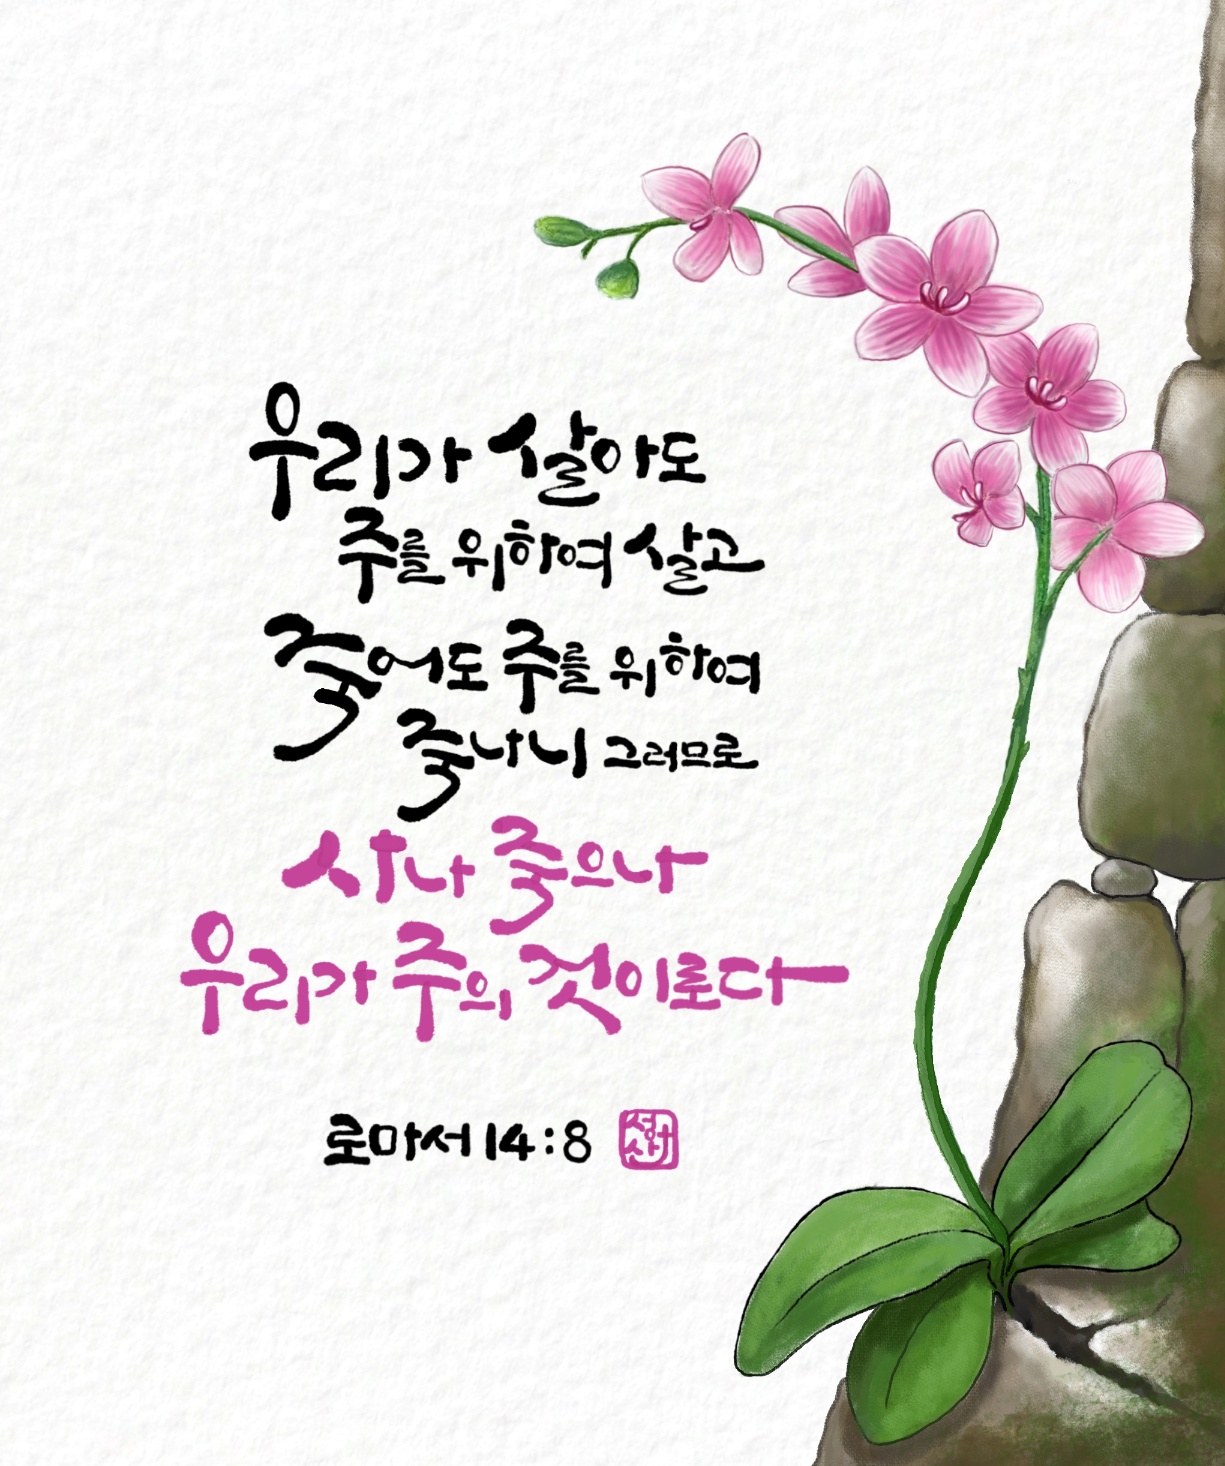 우리가 살아도
주를 위하여 살고
죽어도 주를 위하여
죽나니 그러므로
사나 죽으나
우리가 주의 것이로다
로마서 14:8